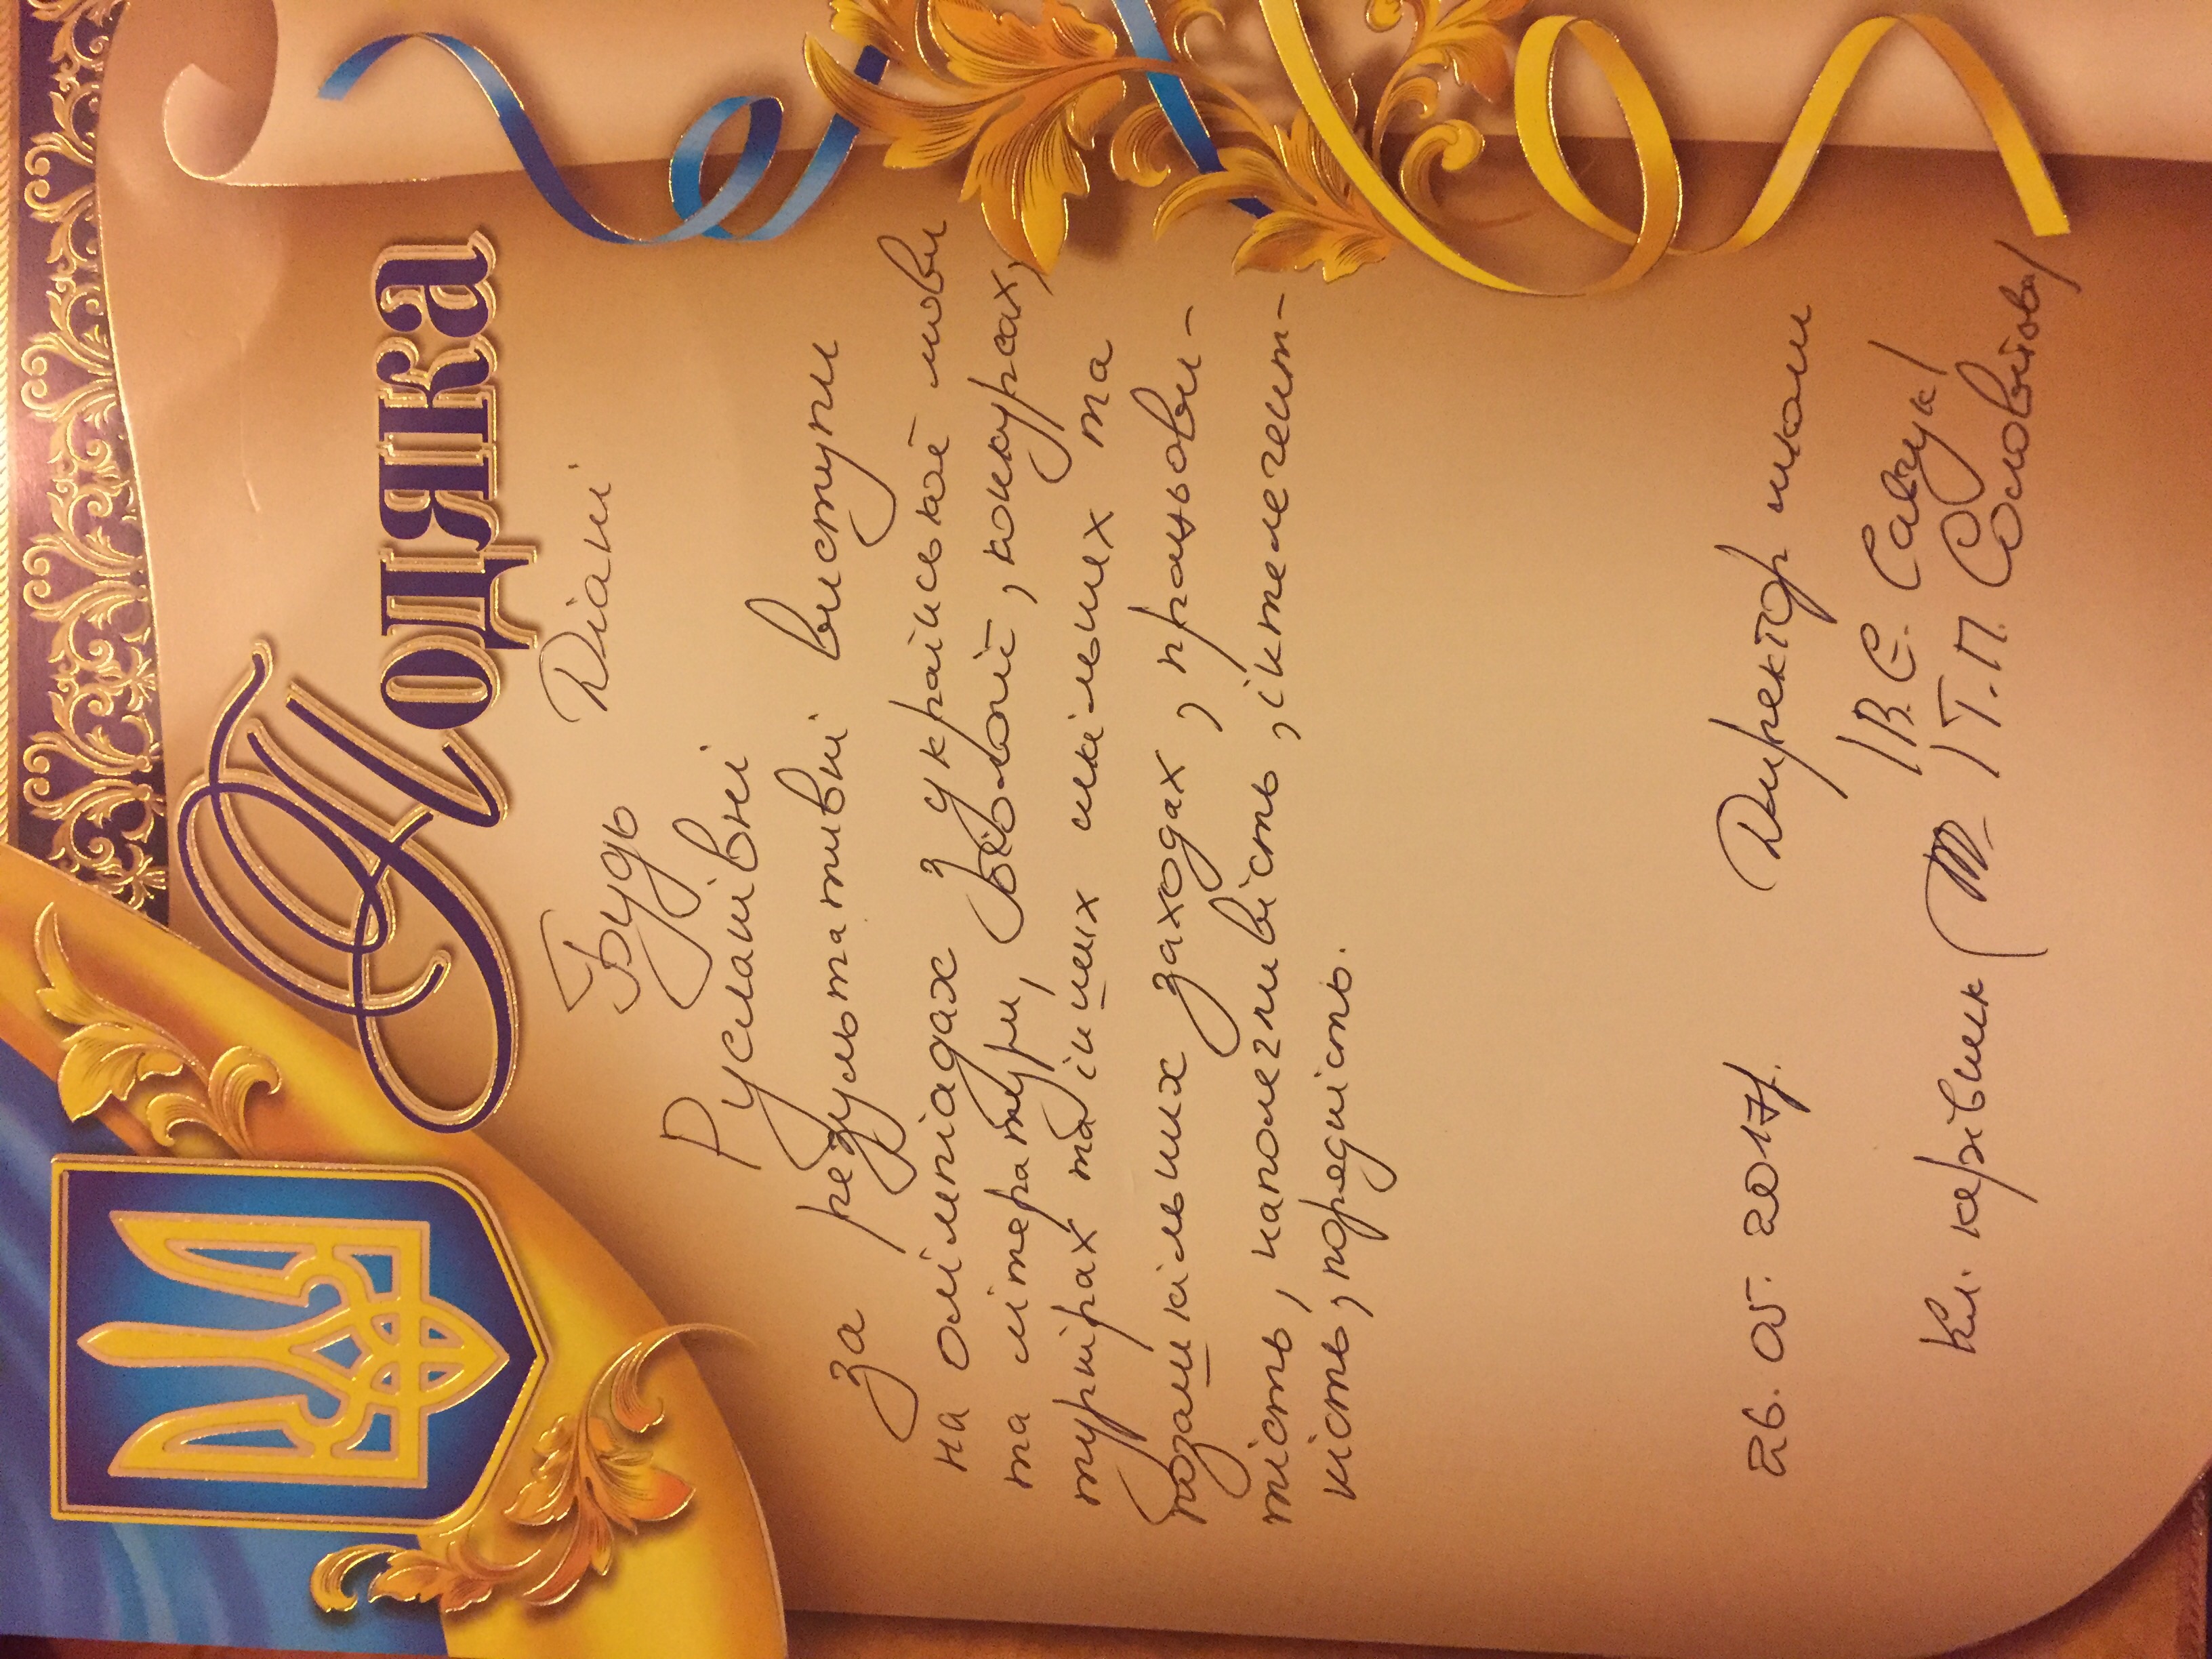 Подяка
Будь Діані
Русланівні
за результативні виступи
на олімпіадах з української мови
та літератури, біології, конкурсах,
турнірах та інших шкільних та
позашкільних заходах, працьови-
тість, наполегливість, інтелегент-
ність, порядність.
26.05.2017р. Директор школи
/В.Є. Савчук/
Кл. керівник /Т.П. Соловйова/